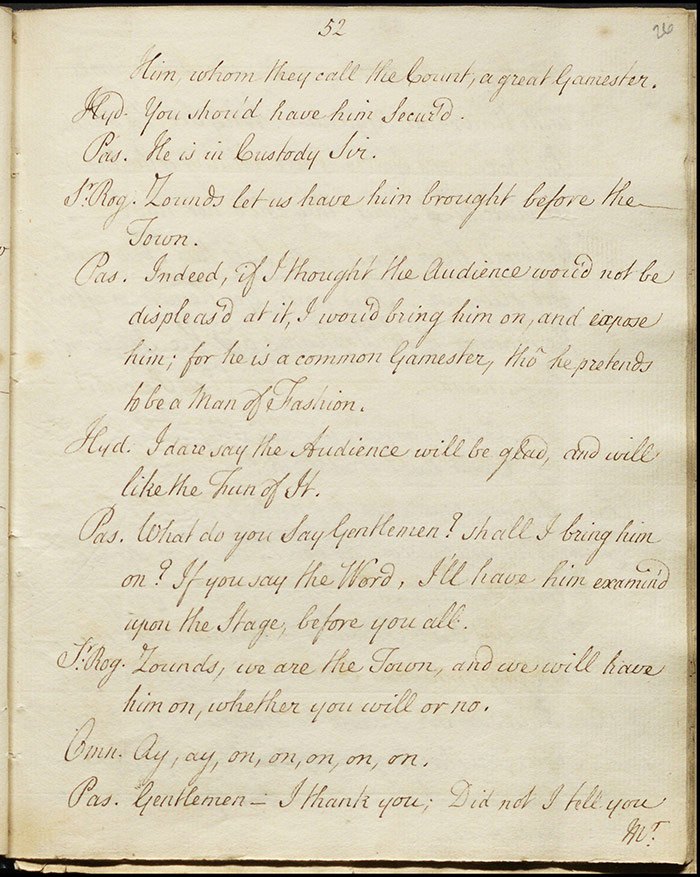 52
26
Him, whom they call the Count, a great Gamester.
Hyd. You shou'd have him Secur'd.
Pas. He is in Custody Sir.
Sr. Rog. Zounds let us have him brought before the
Town.
Pas. Indeed, if I thought the Audience wou'd not be
displeas'd at it, I wou'd bring him on, and expose
him; for he is a common Gamester, tho' he pretends
to be a Man of Fashion.
Hyd. I dare say the Audience will be glad, and will
like the Fun of It.
Pas. What do you Say Gentlemen? shall I bring him
on? If you say the Word, I'll have him examin'd
upon the Stage, before you all.
Sr. Rog. Zounds, we are the Town, and we will have
him on, whether you will or no.
Omn. Ay, ay, on, on, on, on, on.
Pas. Gentlemen – I thank you; Did not I tell you
Mr.